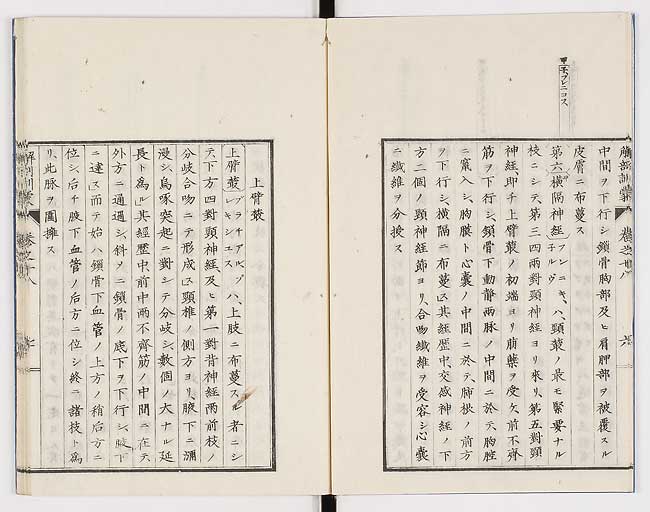 中間ヲ下行シ鎖骨胸部及ヒ肩胛部ヲ被覆スル
皮膚ニ布蔓ス
第六横隔神経 フレニキ、子ルヴ ハ、頸叢ノ最モ緊要ナル
枝ニシテ、第三四兩對頸神経ヨリ來リ、第五對頸
神経、即チ上臂叢ノ初端ヨリ補藥ヲ受ケ、前不齊
筋ヲ下行シ、鎖骨下動静兩脉ノ中間ニ於テ胸腔
ニ竄入シ、胸膜ト心囊ノ中間ニ於テ肺根ノ前方
ヲ下行シ、横隔ニ布蔓ス、其経歴中、交感神経ノ下
方二個ノ頸神経節ヨリ、合吻纎維ヲ受容シ心囊
ニ纎維ヲ分授ス
上臂叢
上臂叢 ブラチアル、プレキシュス ハ、上肢ニ布蔓スル者ニシ
テ、下方四對頸神経、及ヒ第一對背神経兩前枝ノ
分歧合吻ニテ形成ス、頸椎ノ側方ヨリ、腋下ニ瀰
漫シ、烏喙突起ニ對シテ分歧シ、數個ノ大ナル延
長ト為ル、其経歴中、前中兩不齊筋ノ中間ニ在テ
外方ニ通過シ、斜メニ鎖骨ノ底下ヲ下行シ、腋下
ニ達ス、而テ始ハ鎖骨下血管ノ上方ノ稍后方ニ
位シ、后チ腋下血管ノ后方ニ位シ、終ニ諸枝ト為
リ、此脉ヲ圍擁ス